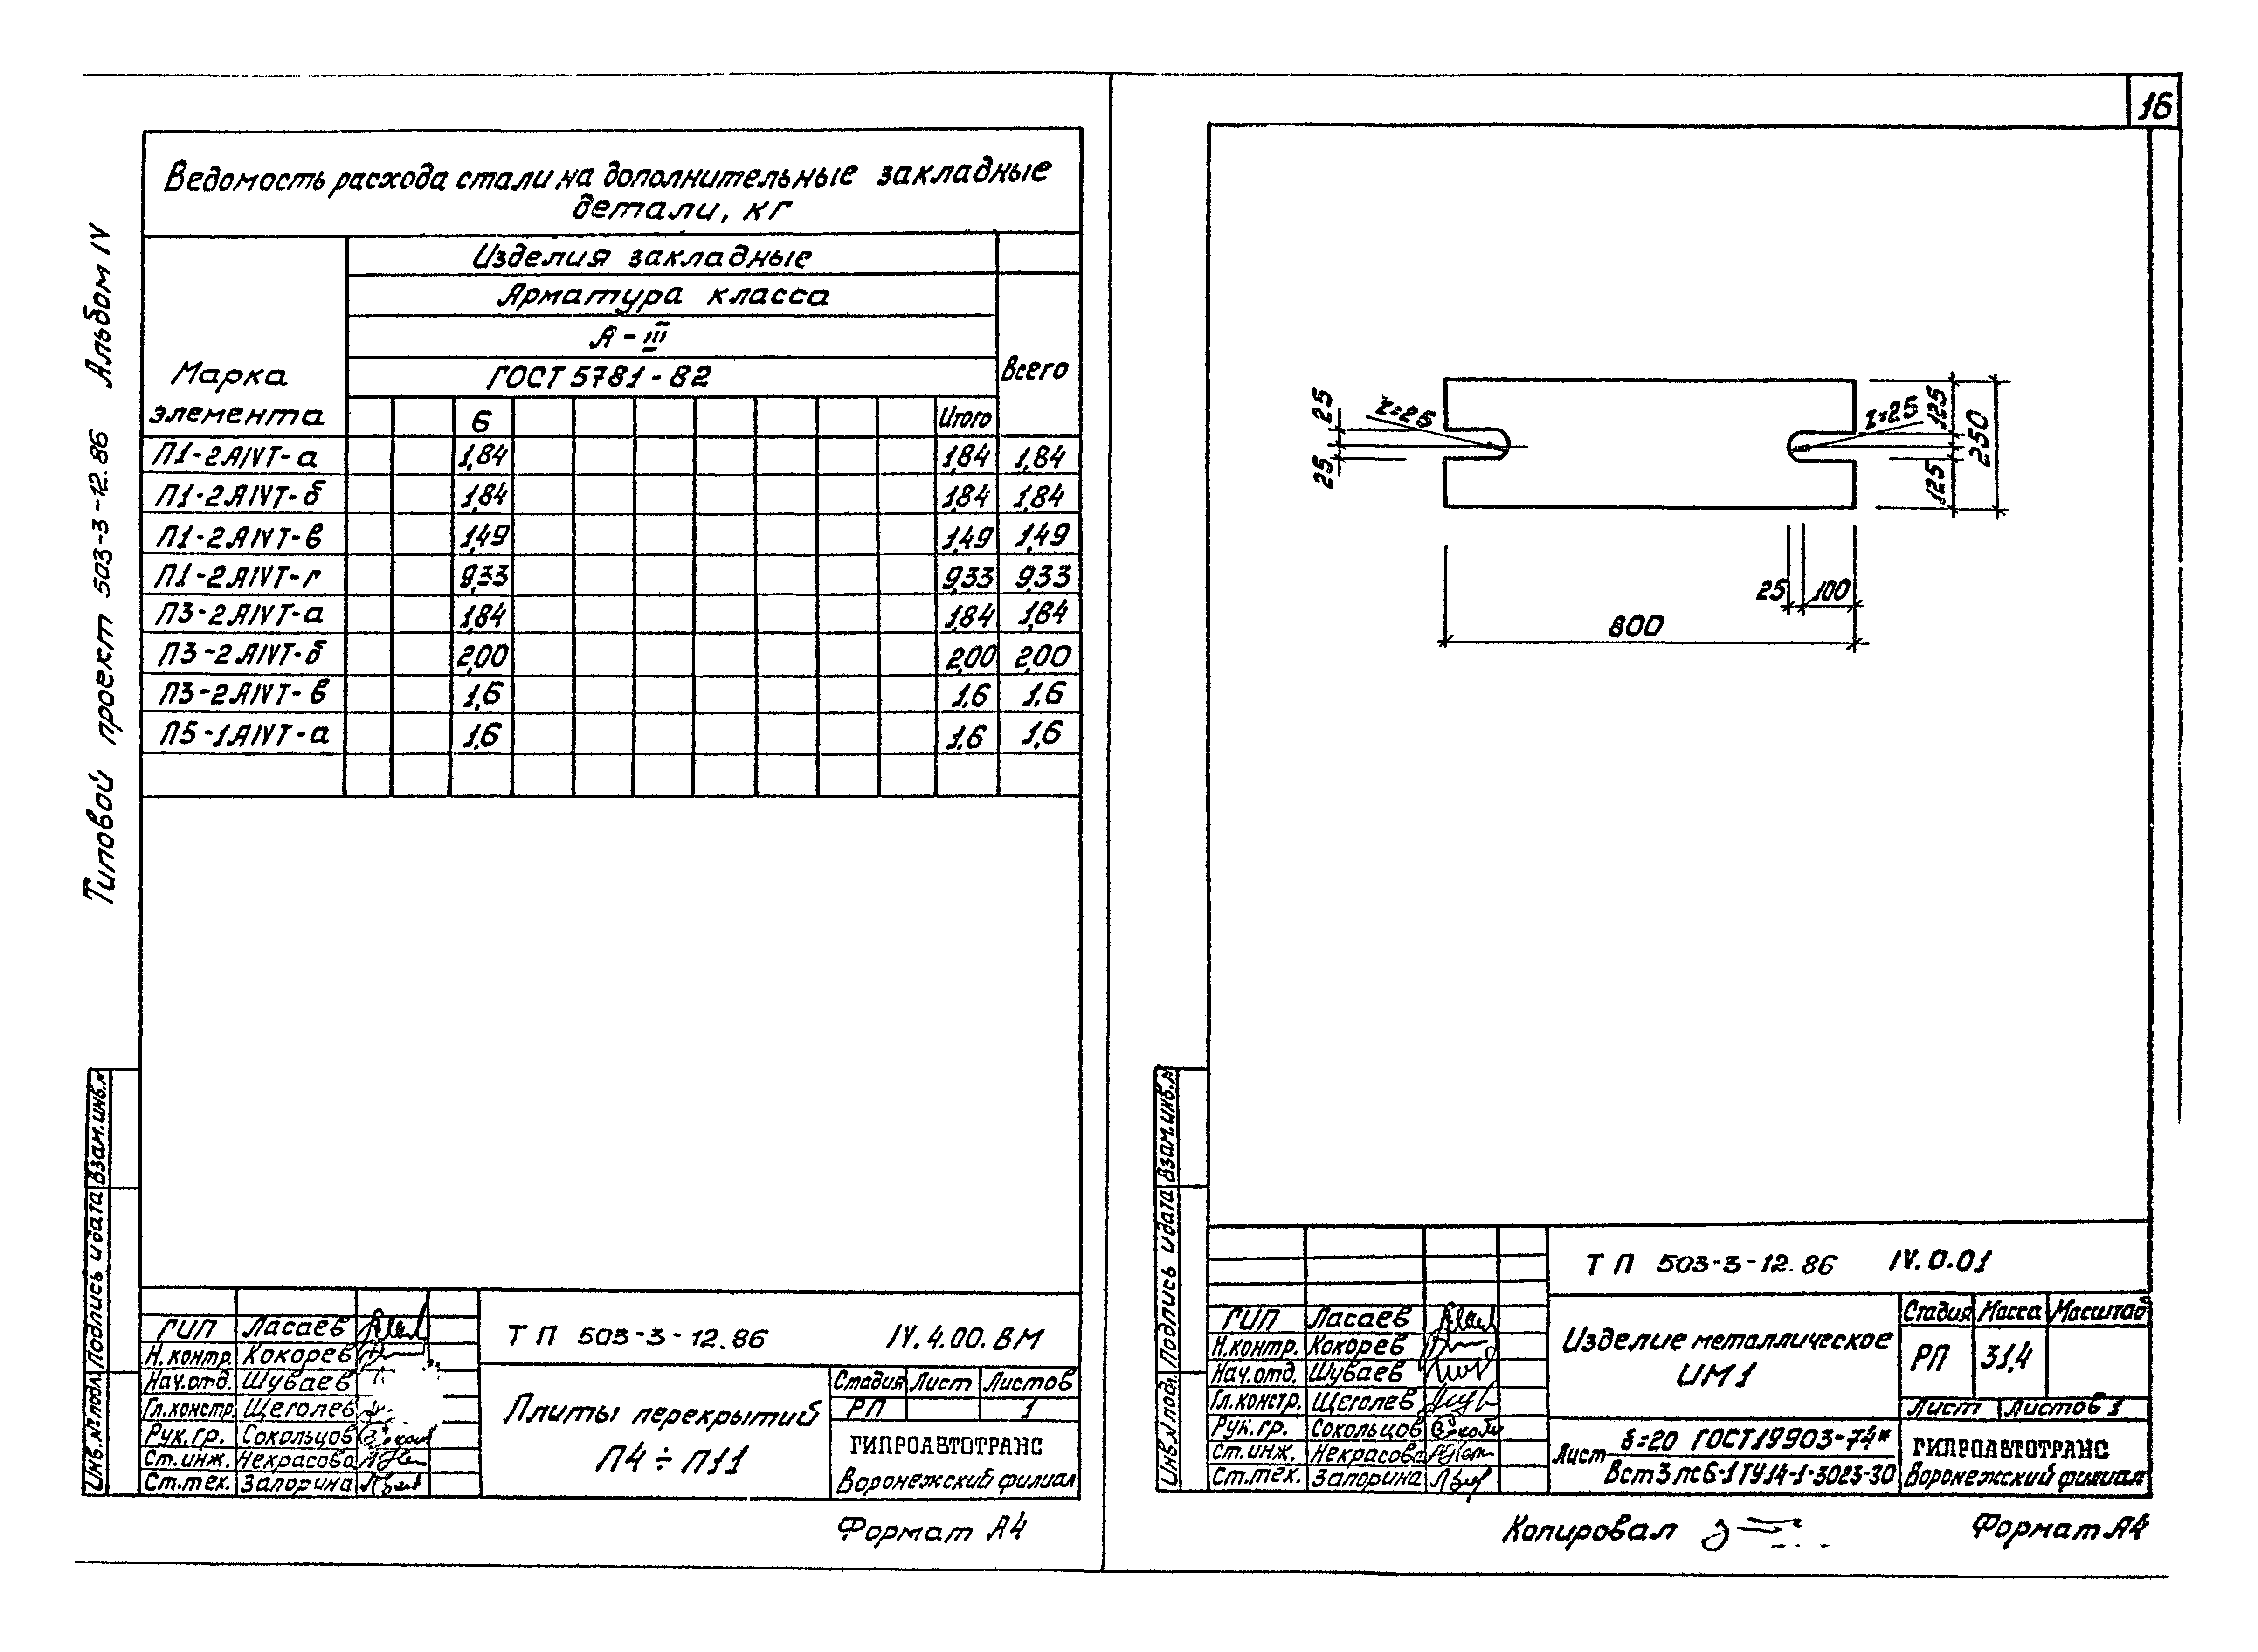 16
Типовой проект 503-3-12.86 Альбом IV
Ведомость расхода стали на дополнительные закладные
детали, кг
Марка
элемента
Изделия закладные
Арматура класса
А-III
ГОСТ 5781-82
Всего
6 Итого
П1-2АIVТ-а 1,84 1,84 1,84
П1-2АIVТ-б 1,84 1,84 1,84
П1-2АIVТ-в 1,49 1,49 1,49
П1-2АIVТ-г 9,33 9,33 9,33
П3-2АIVТ-а 1,84 1,84 1,84
П3-2АIVТ-б 2,00 2,00 2,00
П3-2АIVТ-в 1,6 1,6 1,6
П5-1АIVТ-а 1,6 1,6 1,6
Инв.№подл. Подпись и дата Взам.инв.№
ГИП Ласаев
Н.контр. Кокорев
Нач.отд. Шуваев
Гл.констр. Щеголев
Рук.гр. Сокольцов
Ст.инж. Некрасова
Ст.тех. Запорина
ТП 503-3-12.86 IV.4.00.ВМ
Плиты перекрытий
П4÷П11
Стадия Лист Листов
РП 1
ГИПРОАВТОТРАНС
Воронежский филиал
Формат А4
25
25
r=25
r=25
125
125
250
25 100
800
Инв.№подл. Подпись и дата Взам.инв.№
ГИП Ласаев
Н.контр. Кокорев
Нач.отд. Шуваев
Гл.констр. Щеголев
Рук.гр. Сокольцов
Ст.инж. Некрасова
Ст.тех. Запорина
ТП 503-3-12.86 IV.0.01
Изделие металлическое
ИМ1
Стадия Масса Масштаб
РП 31,4
Лист Листов 1
Лист δ=20 ГОСТ19903-74*
Вст3пс6-1ТУ14-1-3023-30
ГИПРОАВТОТРАНС
Воронежский филиал
Копировал
Формат А4